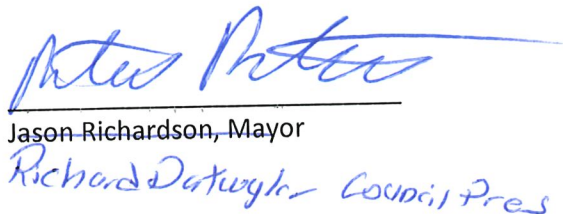 Jason Richardson, Mayor
Richard Datwyler Council Pres